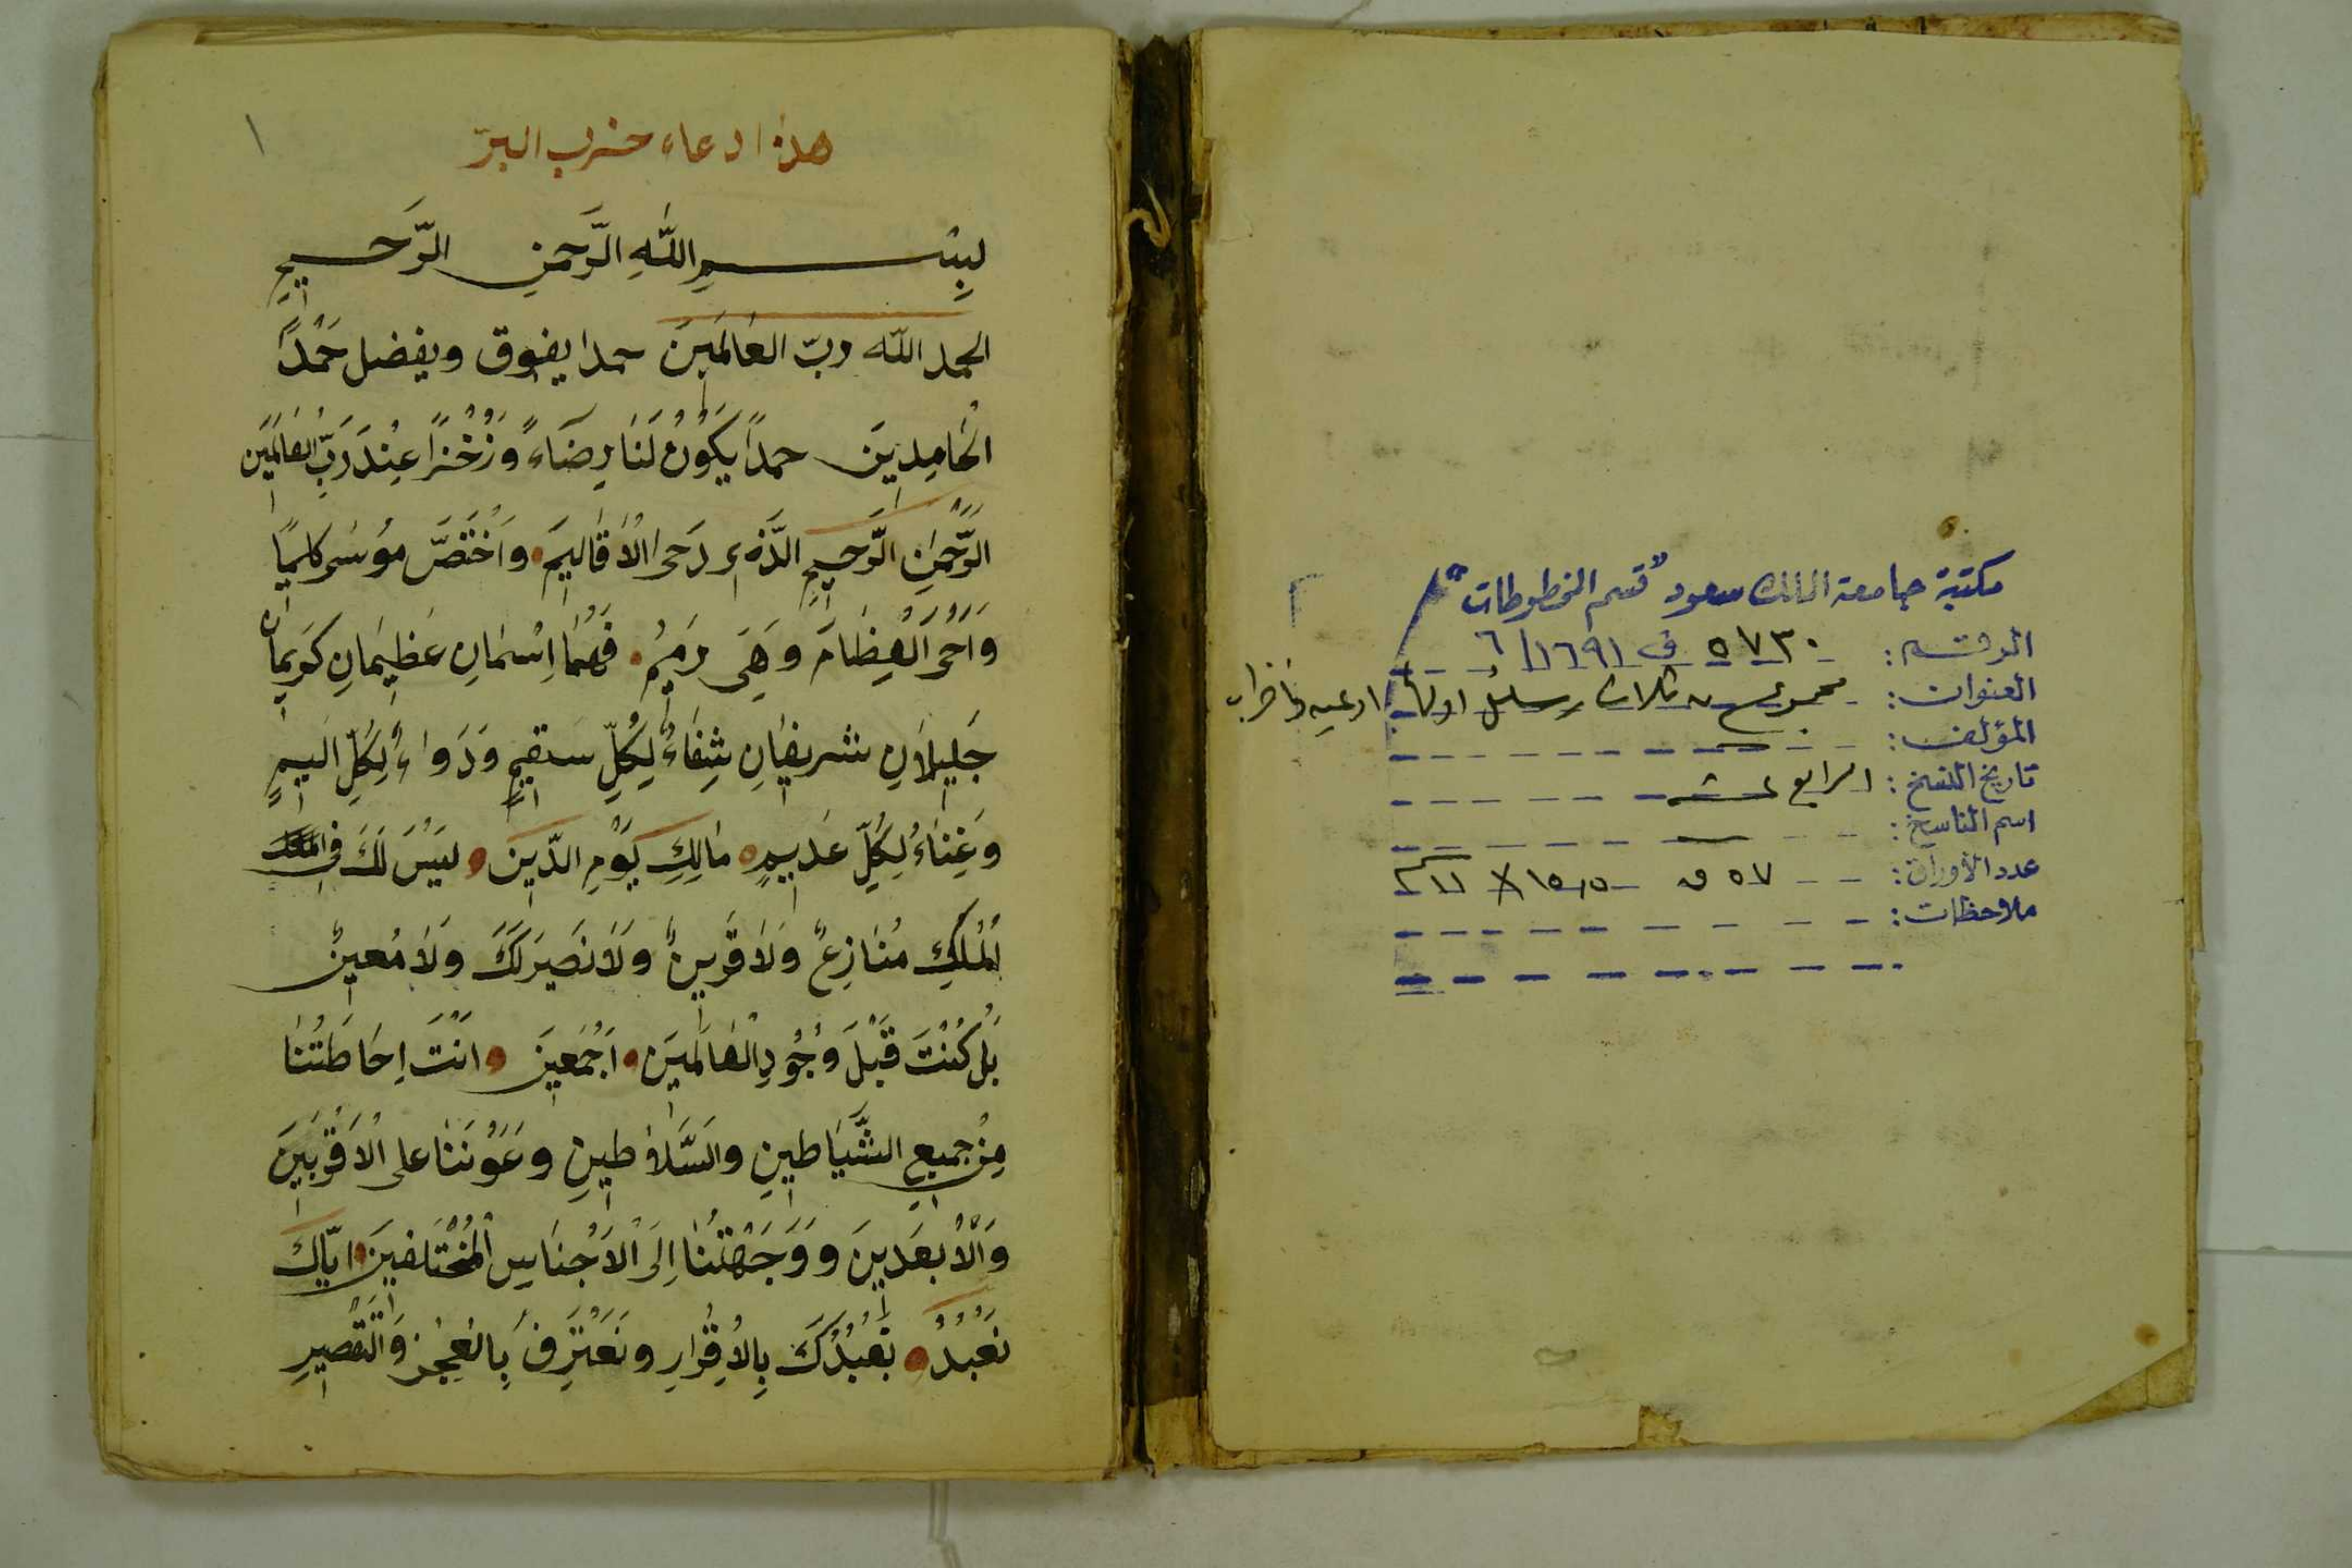 مكتبة جامعة الملك سعود "قسم المخطوطات"
الرقم: ٥٧٣٠ ف ١٦٩١/٦
العنوان: مجموع به ثلاث رسائل اولها ادعيه
المؤلف:
تاريخ النسخ: الرابع عشر
اسم الناسخ:
عدد الأوراق: ٥٧ ق ١٥٫٥ × ١١
ملاحظات:
١
هذا دعاء حزب البرّ
بِسْمِ اللّٰهِ الرَّحمنِ الرَّحيمِ
الحمد اللّه ربّ العَالَمينَ حمدا يفوق ويفضل حَمْدَ
الْحَامِدِينَ حمدًا يَكَوُنُ لَنَا رِضَاءً وَزُخْرًا عِنْدَ رَبِّ الْعَالَمَينِ
الرَّحْمَنِ الرَّحِيمِ الَّذي دَحَى الْاَقَاليِمَ وَاَخْتَصَّ موُسَى كليمًا
وَاَحْىَ الْعِظَامَ وَهِىَ رَميُم فَهُمَا اِسْمَانِ عَظِيمَانِ كَريمَانِ
جَليِلَانِ شريفَانِ شِفَاءُ لِكُلِّ سَقيمٍ وَدَوَاءُ لِكُلِّ اَليمٍ
وَغِنَاءُ لِكُلِّ عَديمٍ مَالِكِ يَوْمِ الدّينِ ليَسْ لَكَ فى
اْلمُلكِ مُنَازِعٌ وَلَا قَريِنٌ وَلَا نَصَيرَ لَكَ وَلَا مُعينٌ
بَلْ كُنْتَ قَبْلَ وُجُودِ الْعَالَميَن اَجْمَعينَ اَنْتَ اِحَاطَتُنَا
مِنْ جميعِ الشَّيَاطينِ وَالسَّلَاطينِ وعَوْنَنَا على الْاَقْرَبينَ
وَالْاَبعَدينَ وَوَجَهْتَنَا اِلَى الْاَجْنَاسِ الْمُخْتَلفينَ ايّاكَ
نَعْبُدُ نَعْبُدُكَ بِالْاِقْرَارِ ونَعْتَرِفُ بِالْعَجْزِ وَالتَّقْصِيرِ